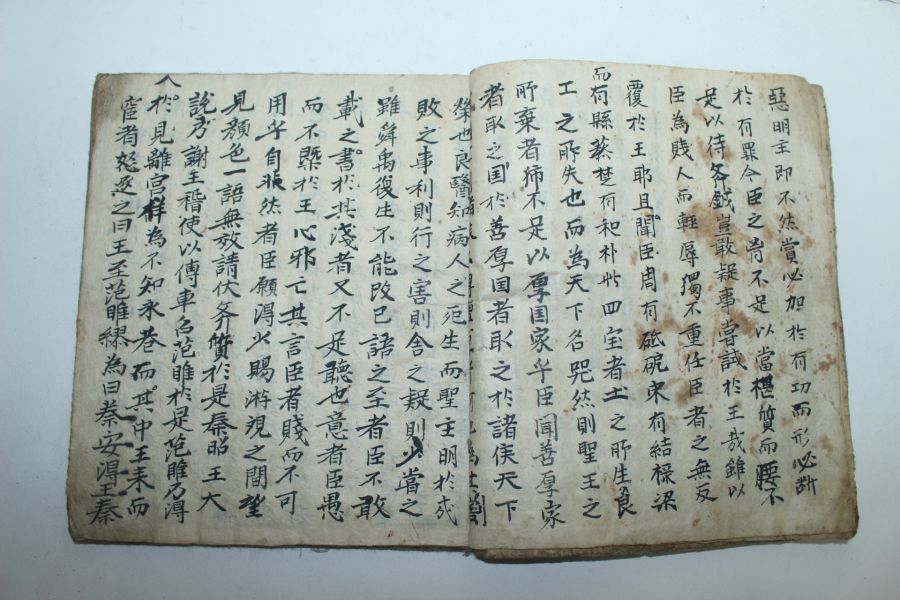 惡明主即不然賞必加於有功而形必断
於有罪今臣之胷不足以當椹質而腰不
足以待斧鉞豈敢疑事嘗試於王㦲雖以
臣為賤人而輕辱獨不重任臣者之無反
覆於王耶且聞臣周有砥砨宋有結禄梁
而有縣蔾楚有和朴此四宝者土之所生良
工之所失也而為天下名咒然則聖王之
所棄者独不足以厚国家乎臣聞善厚家
者取之国於善厚国者取之於諸侯天下
榮也良醫知病人之死生而聖主明於成
敗之事利則行之害則舍之疑則少當之
雖舜禹復生不能改已語之至者臣不敢
載之書於其淺者又不足聽也意者臣愚
而不槩於王心邪亡其言臣者賤而不可
用乎自非然者臣願淂少賜游視之間望
見顔色一語無效請伏斧質於是秦昭王大
說方謝王稽使以傳車召范雎於是范雎乃淂
入於見離宮詳為不知永巷而其中王来而
宦者怒逐之曰王至范雎繆為曰秦安淂王秦